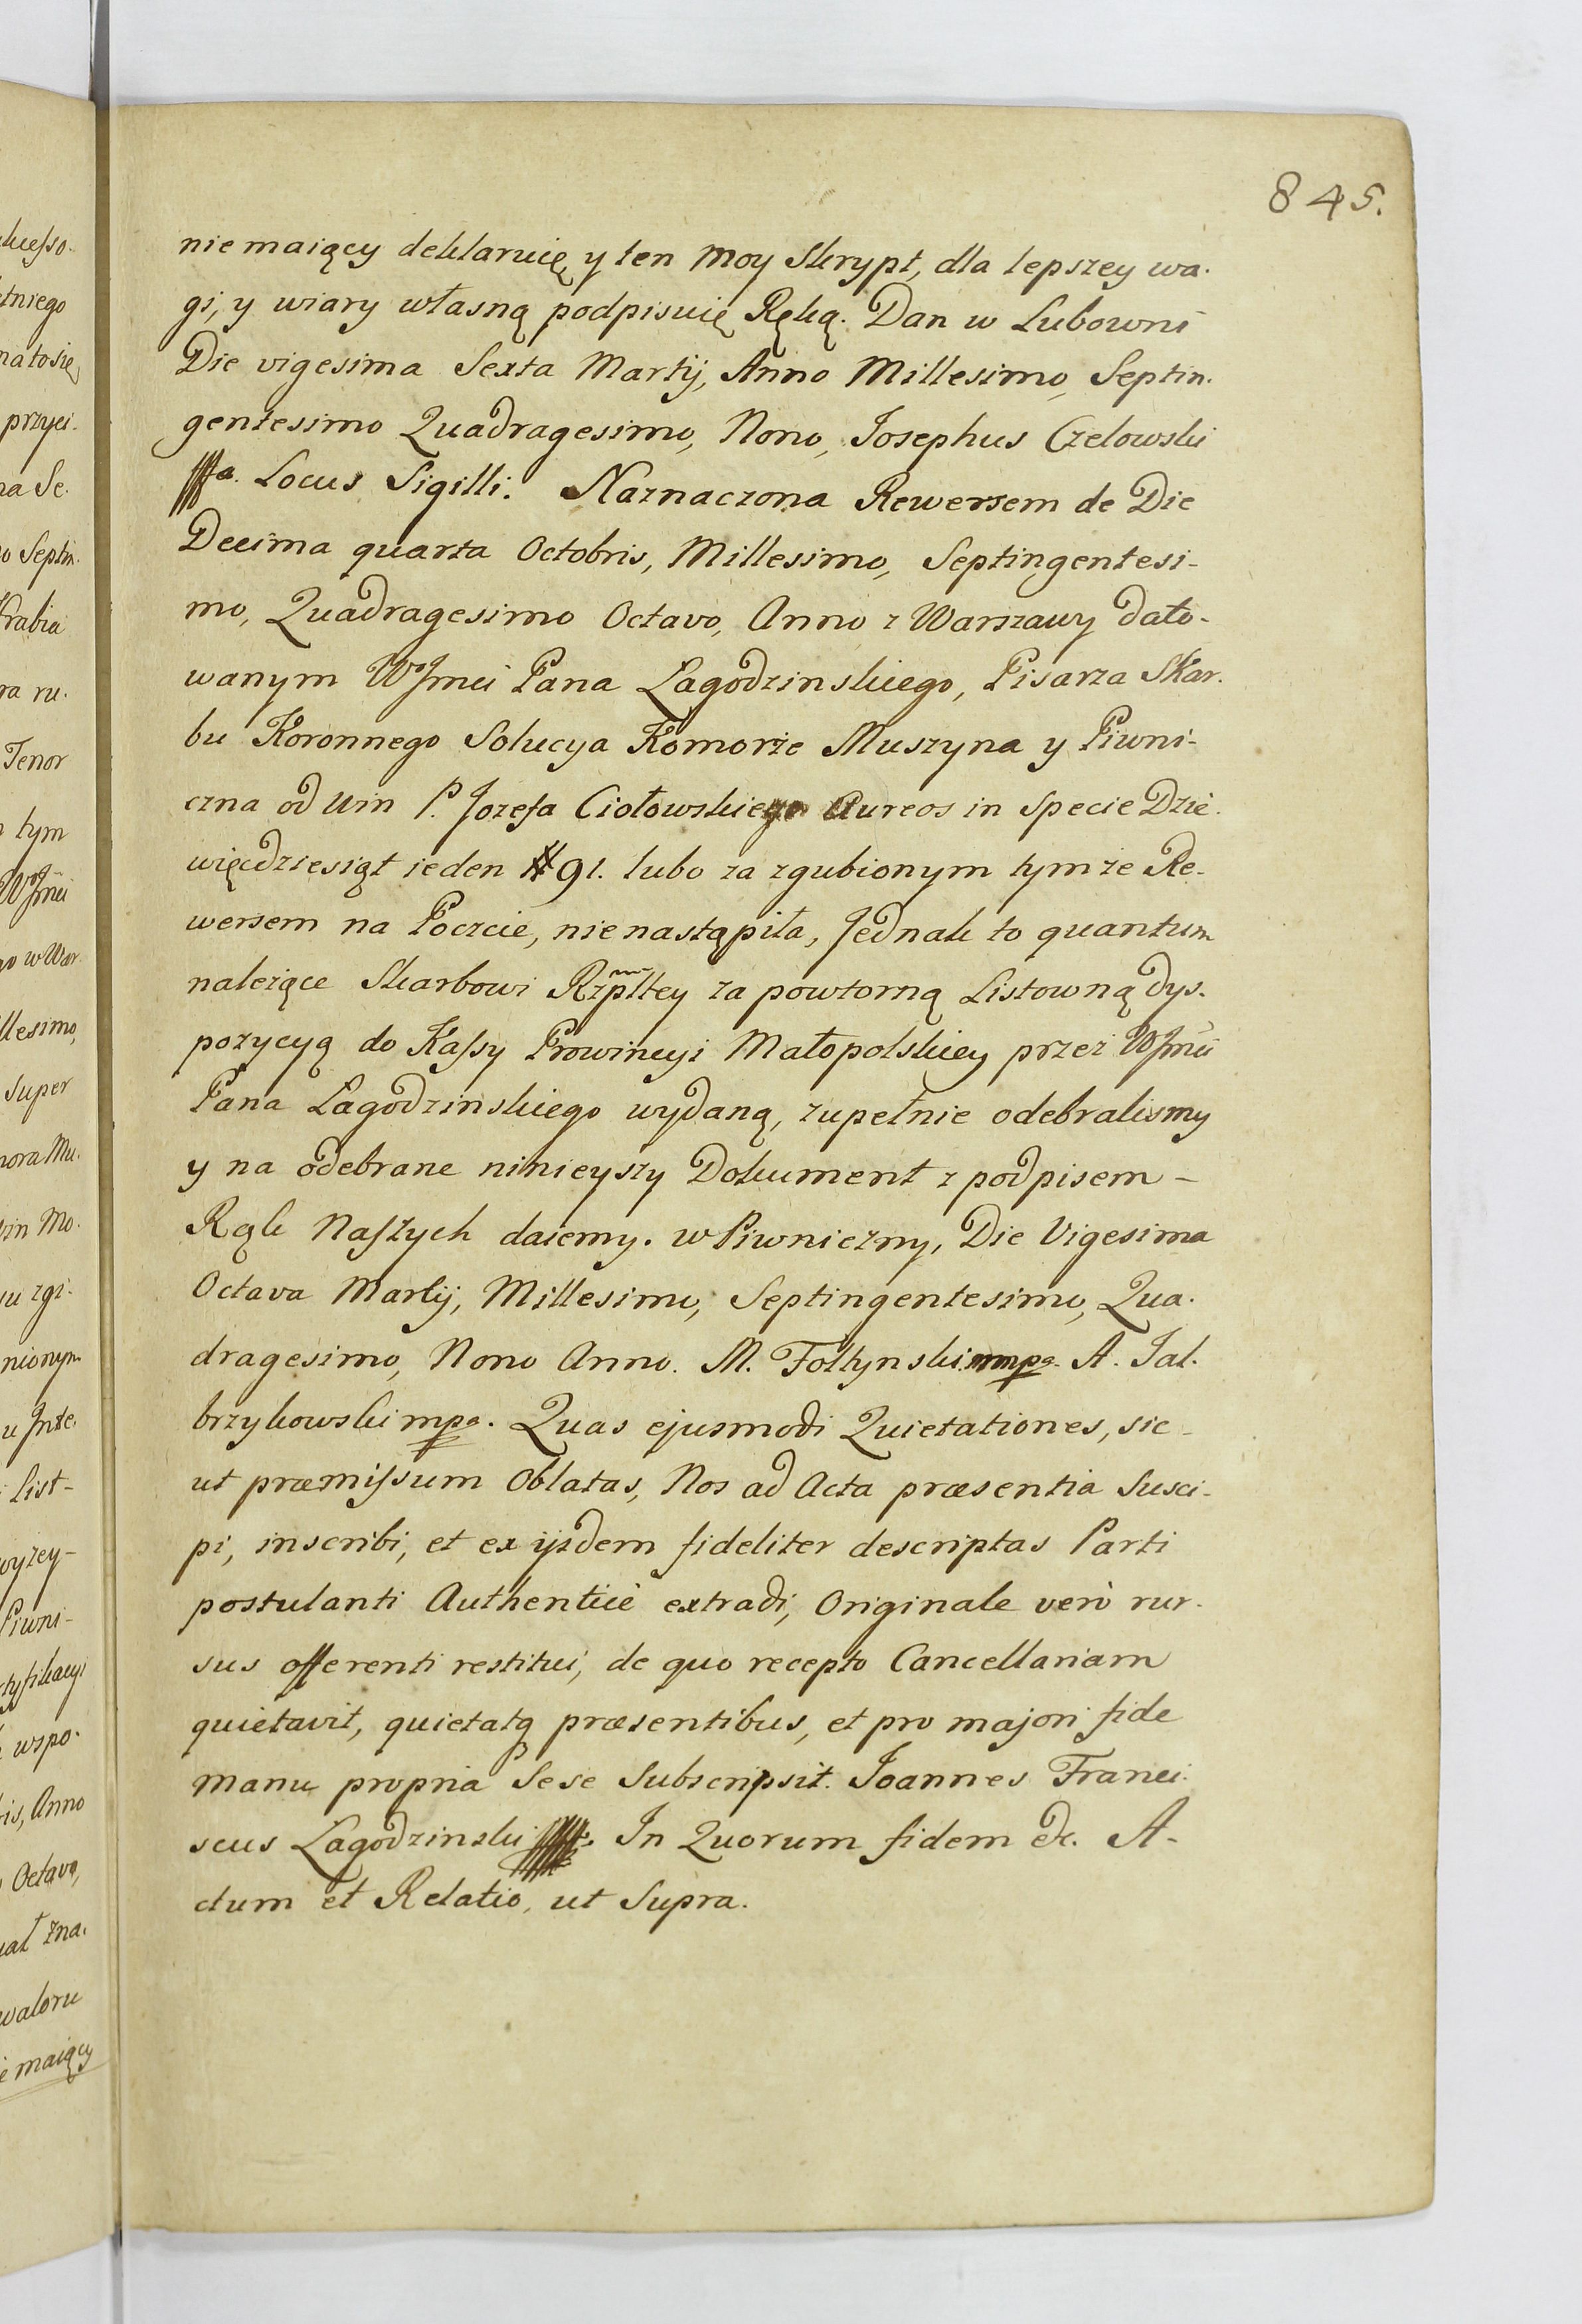 845.
nie maiący deklaruię, y ten moy Skrypt, dla lepszey wa.
gi, y wiary własną podpisuię Ręką. Dan w Lubowni
Die vigesima Sexta Martij, Anno Millesimo, Septin.
gentesimo Quadragesimo, Nono, Josephus Czelowski
Locus Sigilli. Naznaczona Rewersem de Die
Decima quarta Octobris, Millesimo, Septingentesi-
mo, Quadragesimo Octavo, Anno z Warszawy dato-
wanym WJmći Pana Łagodzinskiego, Pisarza Skar.
bu Koronnego Solucya Komorze Muszyna y Piwni-
czna od Win P. Jozefa Ciołowskiego Aureos in Specie Dzie.
więcdziesiąt ieden # 91. lubo za zgubionym tymże Re-
wersem na Poczcie, nie nastąpiła, Jednak to quantum
należące Skarbowi Rzpltey za powtorną Listowną dys.
pozycyą do Kassy Prowincyi Małopolskiey przez WJmći
Pana Łagodzinskiego wydaną, zupełnie odebralismy
y na odebrane ninieyszy Dokument z podpisem -
Rąk Naszych daiemy. w Piwniczny, Die Vigesima
Octava Martij, Millesimo, Septingentesimo, Qua.
dragesimo, Nono Anno. M. Foltynski mpa. A. Jal.
brzykowski mpa. Quas ejusmodi Quietationes, sic -
ut præmissum Oblatas, Nos ad Acta præsentia Susci-
pi, inscribi, et ex ijsdem fideliter descriptas Parti
postulanti Authenticè extradi, Originale verò rur.
sus offerenti restitui, de quo recepto Cancellariam
quietavit, quietatq præsentibus, et pro majori fide
manu propria Sese Subscripsit. Joannes Franci.
scus Łagodzinski In Quorum fidem &c. A-
ctum et Relatio, ut Supra.